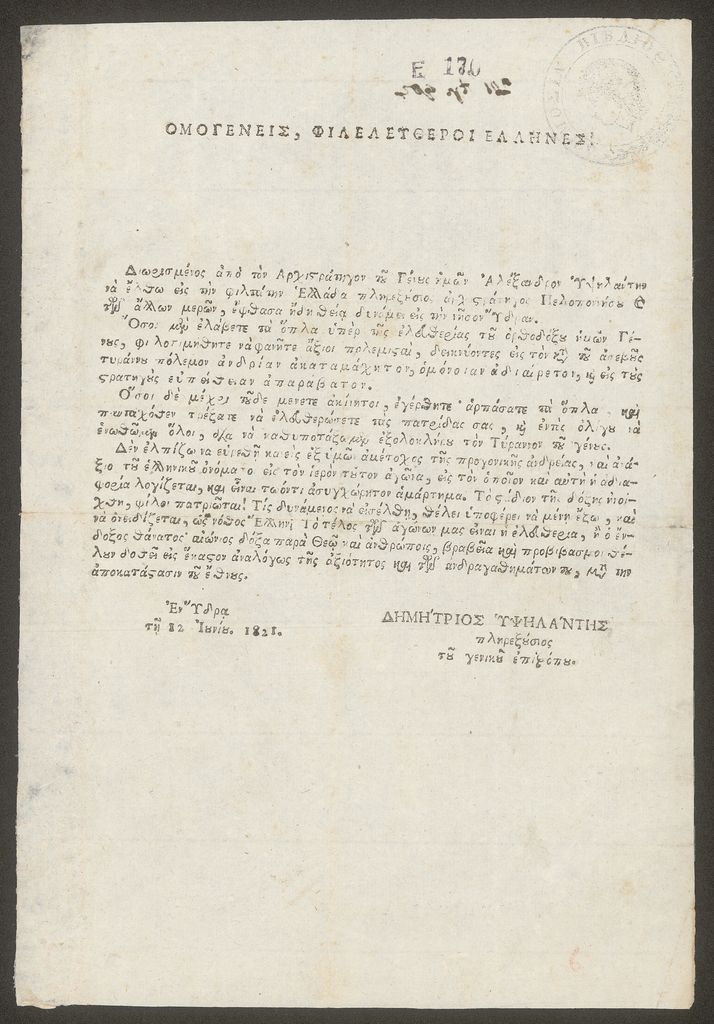 Ε 130
ΟΜΟΓΕΝΕΙΣ, ΦΙΛΕΛΕΥΘΕΡΟΙ ΕΛΛΗΝΕΣ!
Διωρισμένος ἀπὸ τὸν Ἀρχιστράτηγον τοῦ Γένους ἡμῶν Ἀλέξανδρον Ὑψηλάντην
νὰ ἔλθω εἰς τὴν φιλτάτην Ἑλλάδα πληρεξούσιος ἀρχιστράτηγος Πελοποννήσου καὶ
τῶν ἄλλων μερῶν, ἔφθασα ἤδη θείᾳ δυνάμει εἰς τὴν νῆσον Ὕδραν.
Ὅσοι μὲν ἐλάβετε τὰ ὅπλα ὑπὲρ τῆς ἐλευθερίας τοῦ ὀρθοδόξου ἡμῶν Γέ-
νους, φιλοτιμήθητε νὰ φανῆτε ἄξιοι πολεμισταὶ, δεικνύοντες εἰς τὸν κατὰ τοῦ ἀσεβοῦς
τυράννου πόλεμον ἀνδρίαν ἀκαταμάχητον, ὁμόνοιαν ἀδιαίρετον, καὶ εἰς τοὺς
στρατηγοὺς εὐπείθειαν ἀπαράβατον.
Ὅσοι δὲ μέχρι τοῦδε μένετε ἀκίνητοι, ἐγέρθητε· ἁρπάσατε τὰ ὅπλα, καὶ
πανταχόθεν τρέξατε νὰ ἐλευθερώσετε τὰς πατρίδας σας, καὶ ἐντὸς ὀλίγου νὰ
ἑνωθῶμεν ὅλοι, διὰ νὰ καθυποτάξωμεν ἐξολοκλήρου τὸν Τύραννον τοῦ γένους.
Δὲν ἐλπίζω νὰ εὑρεθῇ κανεὶς ἐξ ὑμῶν ἀμέτοχος τῆς προγονικῆς ἀνδρείας, καὶ ἀνά-
ξιος τοῦ ἑλληνικοῦ ὀνόματος εἰς τὸν ἱερὸν τοῦτον ἀγῶνα, εἰς τὸν ὁποῖον καὶ αὐτὴ ἡ ἀδια-
φορία λογίζεται, καὶ εἶναι τῳόντι ἀσυγχώρητον ἁμάρτημα. Τὸ στάδιον τῆς δόξης ἠνοί-
χθη, φίλοι πατριῶται! Τίς δυνάμενος νὰ εἰσέλθῃ, θέλει ὑποφέρει νὰ μένῃ ἔξω, καὶ
νὰ ὀνειδίζεται, ὡς νόθος Ἕλλην; Τὸ τέλος τῶν ἀγώνων μας εἶναι ἡ ἐλευθερία, ἢ ὁ ἔν-
δοξος θάνατος· αἰώνιος δόξα παρὰ Θεῷ καὶ ἀνθρώποις, βραβεῖα καὶ προβιβασμοὶ θέ-
λουν δοθεῖ εἰς ἕκαστον ἀναλόγως τῆς ἀξιότητος καὶ τῶν ἀνδραγαθημάτων του, μετὰ τὴν
ἀποκατάστασιν τοῦ ἔθνους.
Ἐν Ὕδρᾳ
τῇ 12 Ἰουνίου. 1821.
ΔΗΜΗΤΡΙΟΣ ὙΨΗΛΑΝΤΗΣ
πληρεξούσιος
τοῦ γενικοῦ ἐπιτρόπου.